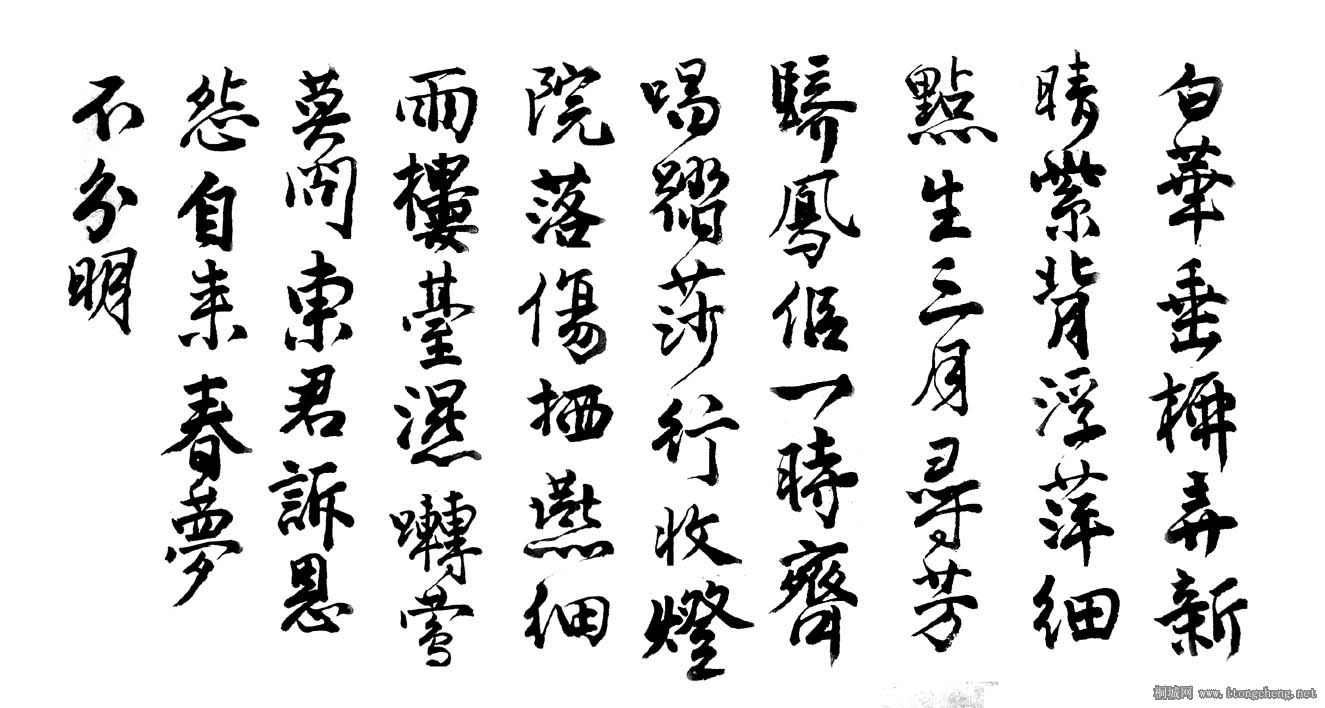 白華垂柵弄新
晴紫背浮萍細
點生三月尋芳
鳳侶一時齊
唱踏莎行收燈
院落傷栖燕細
雨樓臺濕囀鶯
莫問東君訴恩
怨自來春夢
不分明
桐城网 www.itongcheng.net